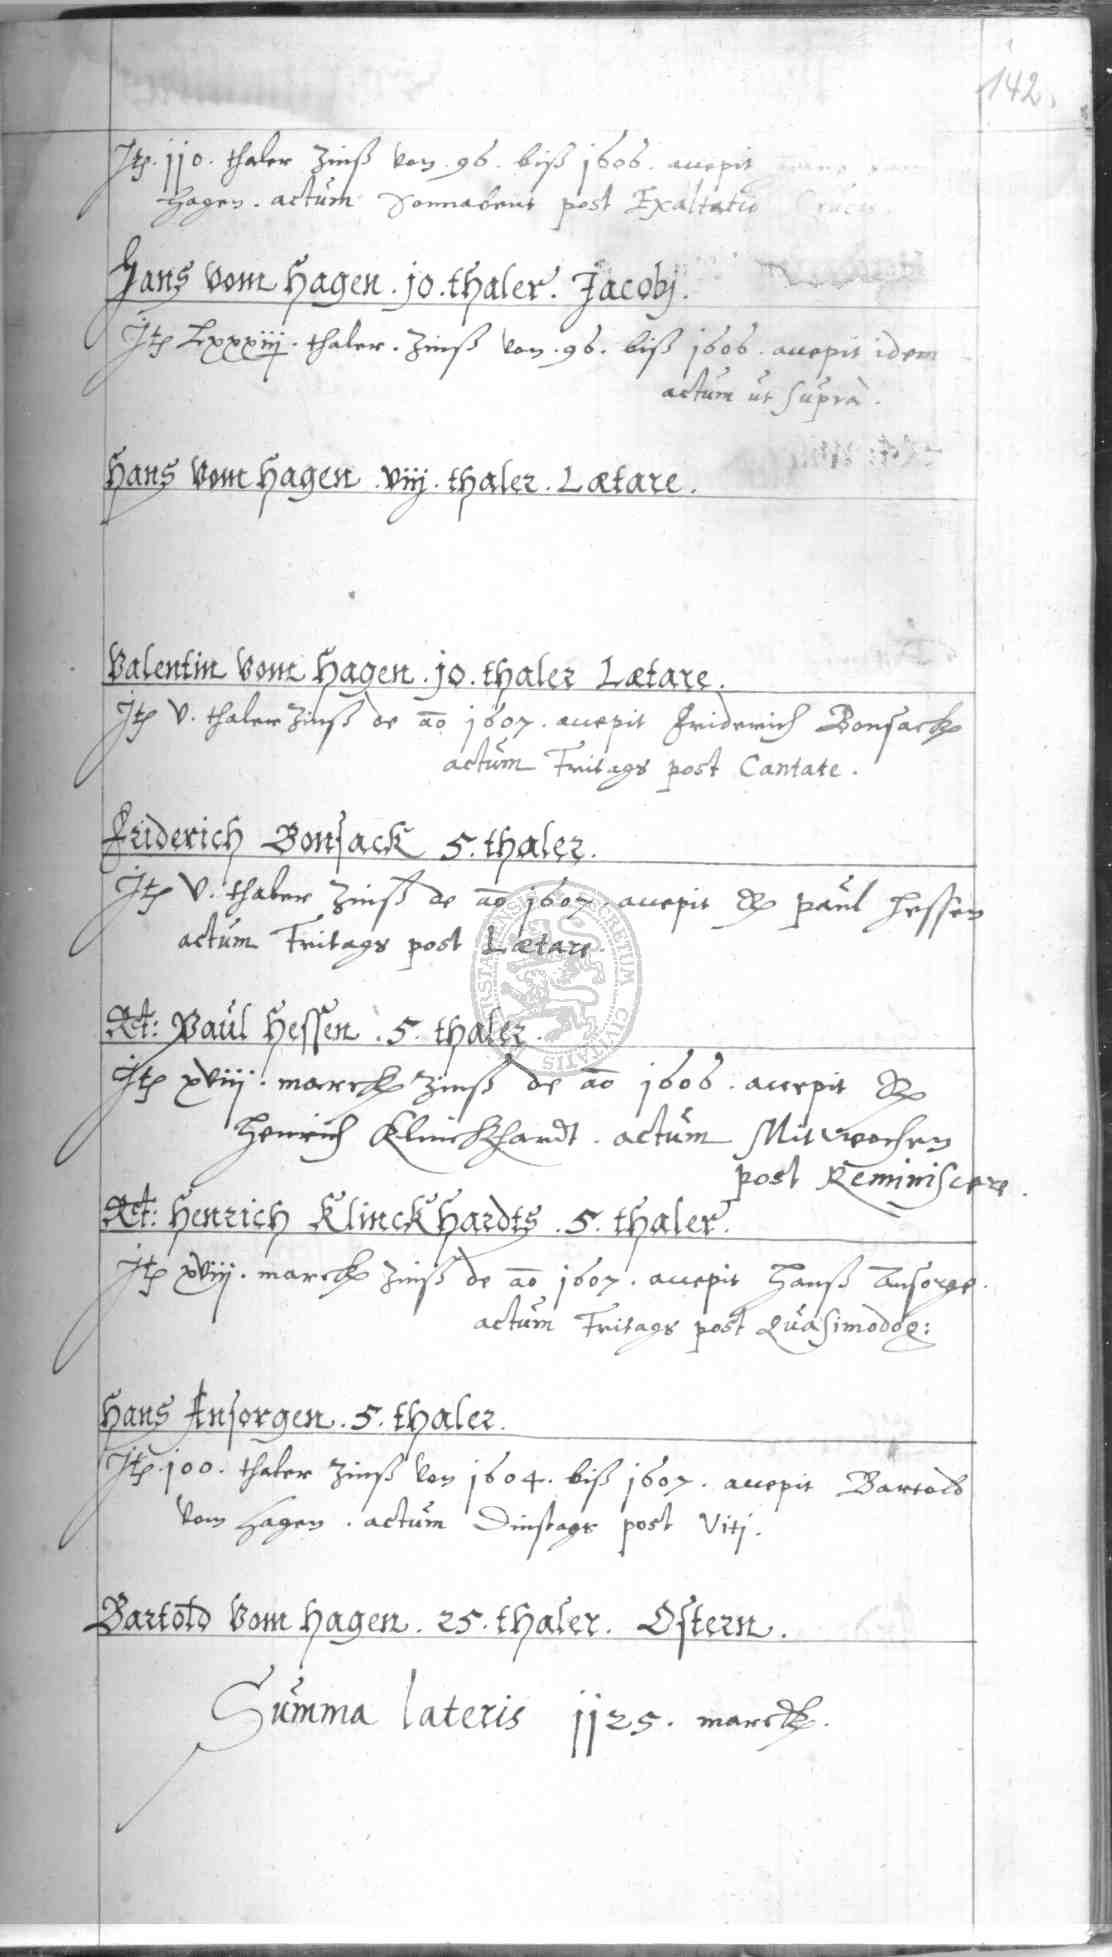 142.
Jtē. jj0. thaler Zinß von .96. biß j606. accepit Hans vom
Hagen. actum Sonnabent post Exaltatio Crucis.
Hans vom Hagen. j0. thaler. Jacobj.
Jtē Lxxxiij. thaler. Zinß von .96. biß j606. accepit idem
actum ut supra.
Hans vom Hagen. viij. thaler. Lætare.
Valentin vom Hagen. j0. thaler Lætare.
Jtē V. thaler Zinß de ao j607. accepit Friderich Bonsack
actum Fritags post Cantate.
Friderich Bonsack 5. thaler.
Jtē V. thaler Zinß de ao j607. accepit Paul Hessen
actum Fritags post Lætare.
Rt: Paul Hessen. 5. thaler.
Jtē xviij. marck Zinß de ao j606. accepit
Henrich Klinckhardt. actum Mitwochen
post Reminiscere.
Rt: Henrich Klinckhardts. 5. thaler.
Jtē xviij. marck Zinß de ao j607. accepit Hanß Ansorge.
actum Fritags post Quasimodog:
Hans Ansorgen. 5. thaler.
Jtē. j00. thaler Zinß von j604. biß j607. accepit Bartold
vom Hagen. actum Dinstags post Vitj.
Bartold vom Hagen. 25. thaler. Ostern.
Summa lateris jj25. marck.
SECRETUM CIVITATIS